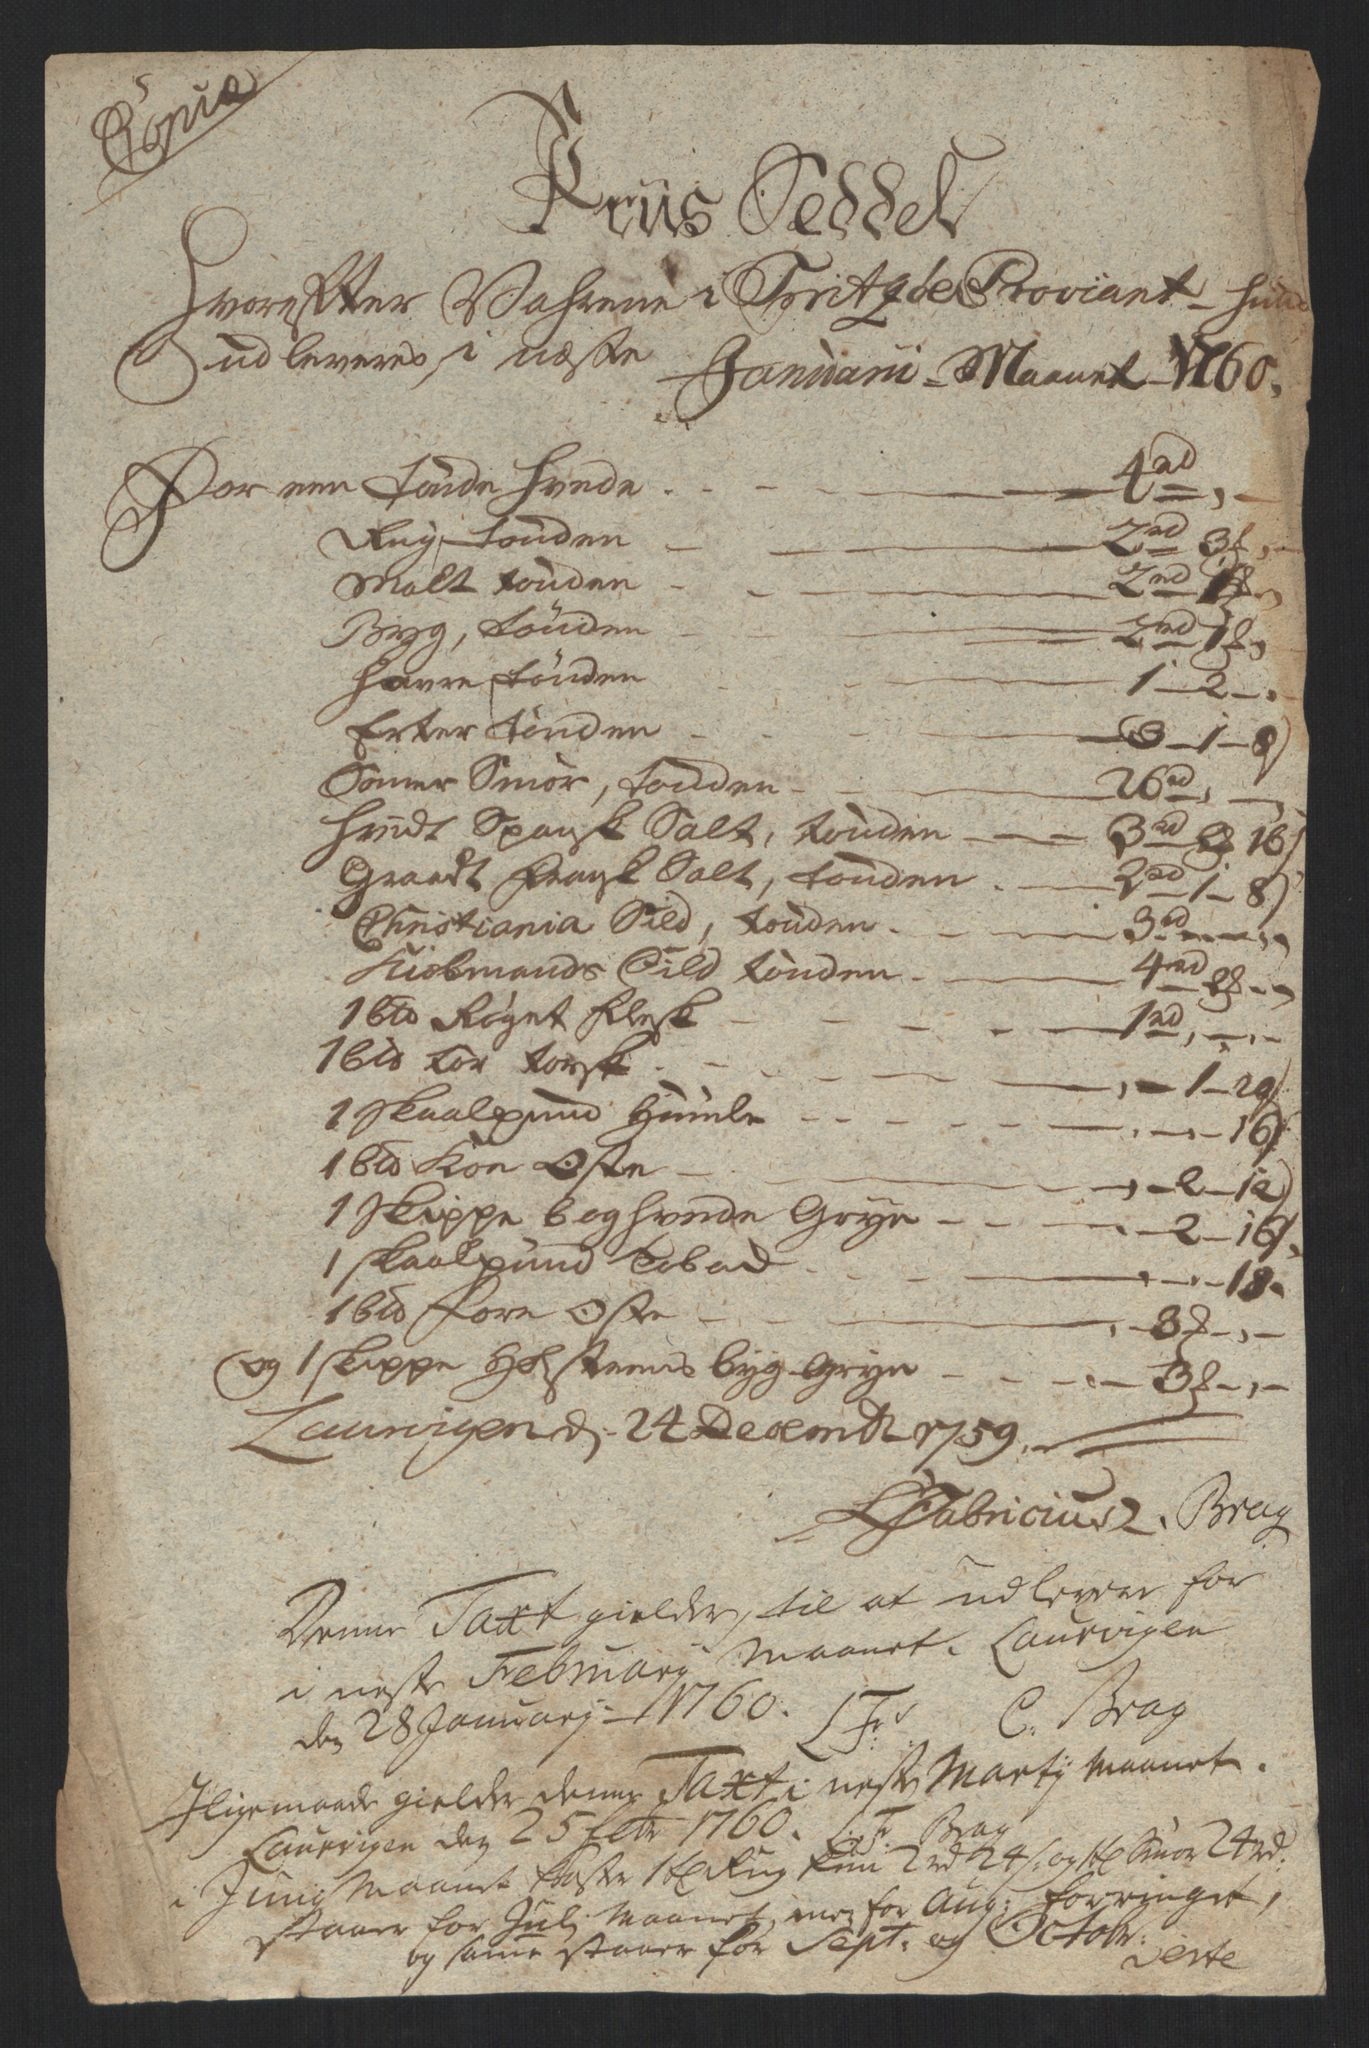 Copia
Priis Seddel
Hvorefter Vahrene i Fritzöe Proviant-huus
udleveres i næste Januarii Maanet 1760.
For een tönde hvede 4 rd
Rug tönden 2 rd 3
Malt tönden 2 rd
Byg, tönden 2 rd 1
Havre tönden 1 - 2
Erter tönden 3 - 1 - 8
Somer Smör, tönden 26 rd
hvidt Spansk Salt, tönden 3 rd 16
Graadt fransk Salt, tönden 2 rd 1 - 8
Christiania Sild, tönden 3 rd
Kiöbmands Sild tönden 4 rd
1 bd Röget flesk 1 rd
1 bd tör torsk 1 - 20
1 skaalpund Humle 16
1 bd Köe Oste 2 - 12
1 skippe boghvede Gryn 2 - 16
1 skaalpund Tobac 18
1 bd fore Oste 3
og 1 skippe Holsteens byg Gryn 3
Laurvigen d. 24 Decembr 1759.
Fabricius C. Brag
Denne Taxt gielder til at udlevere for
i neste February Maanet. Laurvigen
den 28 January 1760. LFr C. Brag
Iligemaade gielder denne Taxt i neste Marty Maanet.
Laurvigen den 25 Febr 1760. L.F. Brag
i Juny Maanet koster 1 td Rug kun 2 rd 24 s. og 1 td Smör 24 rd:
staaer for July Maanet, men for Aug: forringet,
og samme staaer for Sept: og Octobr: